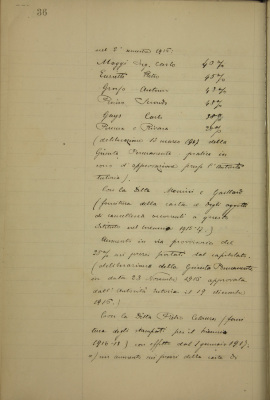 36
nel 2° semestre 1915:
Maggi Ing. Carlo 45%
Pietro 45%
Antonio 43%
45%
Gays Carlo 38%
e 36%
(deliberazione 11 marzo 1917 della
Giunta Permanente - pratica in
corso d'approvazione presso l'autorità
tutoria).
Con la Ditta e Gaillard
(fornitura della carta e degli oggetti
di cancelleria occorrenti a questo
Istituto nel triennio 1915-17)
in via provvisoria del
25% sui prezzi portati dal capitolato.
(deliberazione della Giunta Permanente
in data 23 Novembre 1915 approvata
dall'Autorità tutoria il 19 dicembre
1915.)
Con la Ditta Pietro (forni
tura degli stampati per il triennio
) con effetto dal 1 gennaio 1917:
a) un aumento sui prezzi della carta di